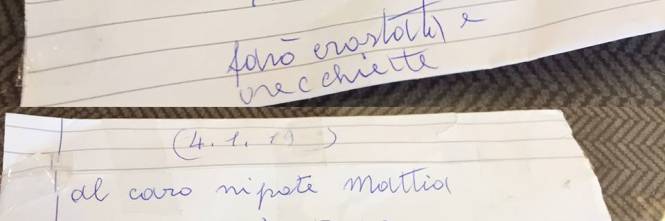 farò crostata e
orecchiette
(4.1.19)
al caro nipote Mattia